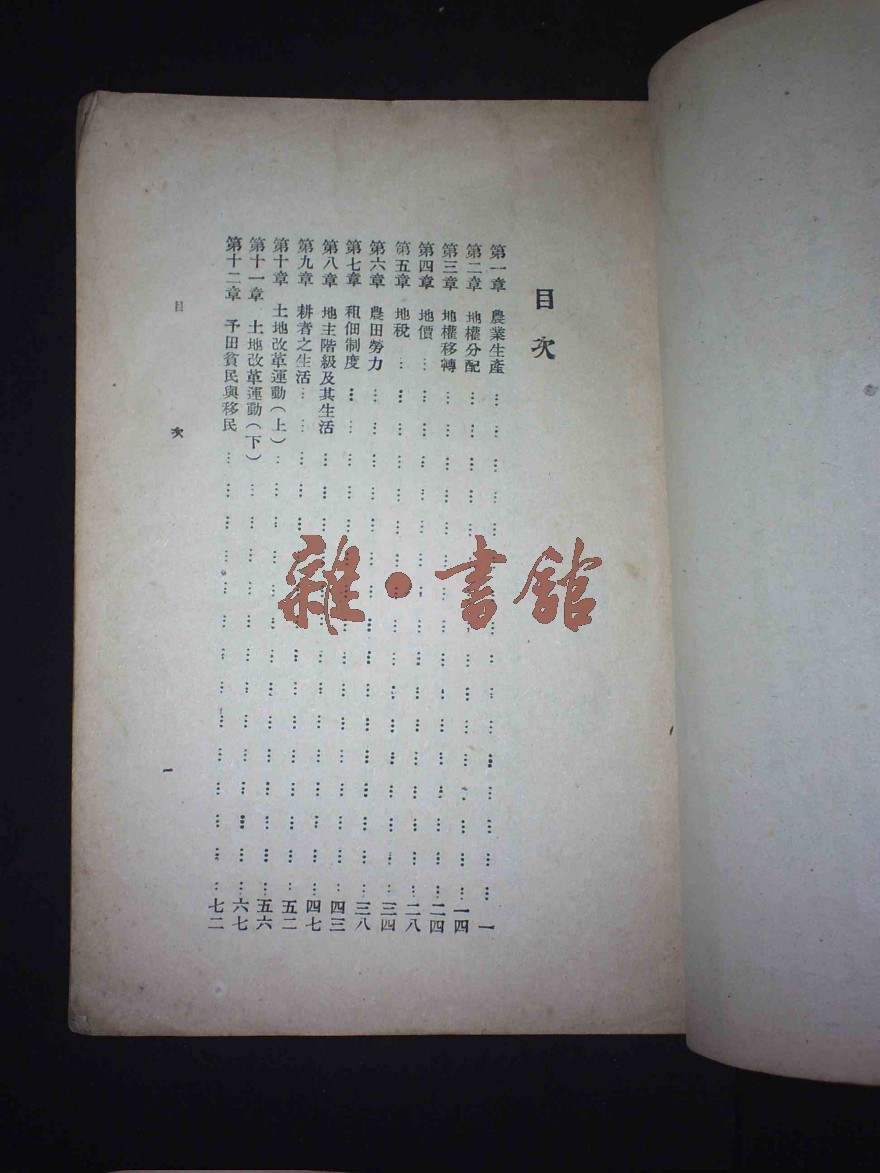 目次
第一章 農業生產 …… 一
第二章 地權分配 …… 一四
第三章 地權移轉 …… 二四
第四章 地價 …… 二八
第五章 地稅 …… 三四
第六章 農田勞力 …… 三八
第七章 租佃制度 …… 四三
第八章 地主階級及其生活 …… 四七
第九章 耕者之生活 …… 五二
第十章 土地改革運動(上) …… 五六
第十一章 土地改革運動(下) …… 六七
第十二章 予田貧民與移民 …… 七二
目次
一
雜·書館